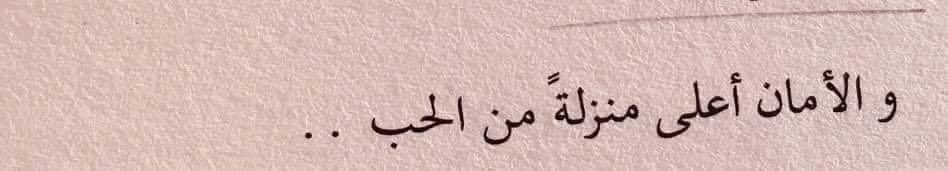 و الأمان أعلى منزلةً من الحب ..